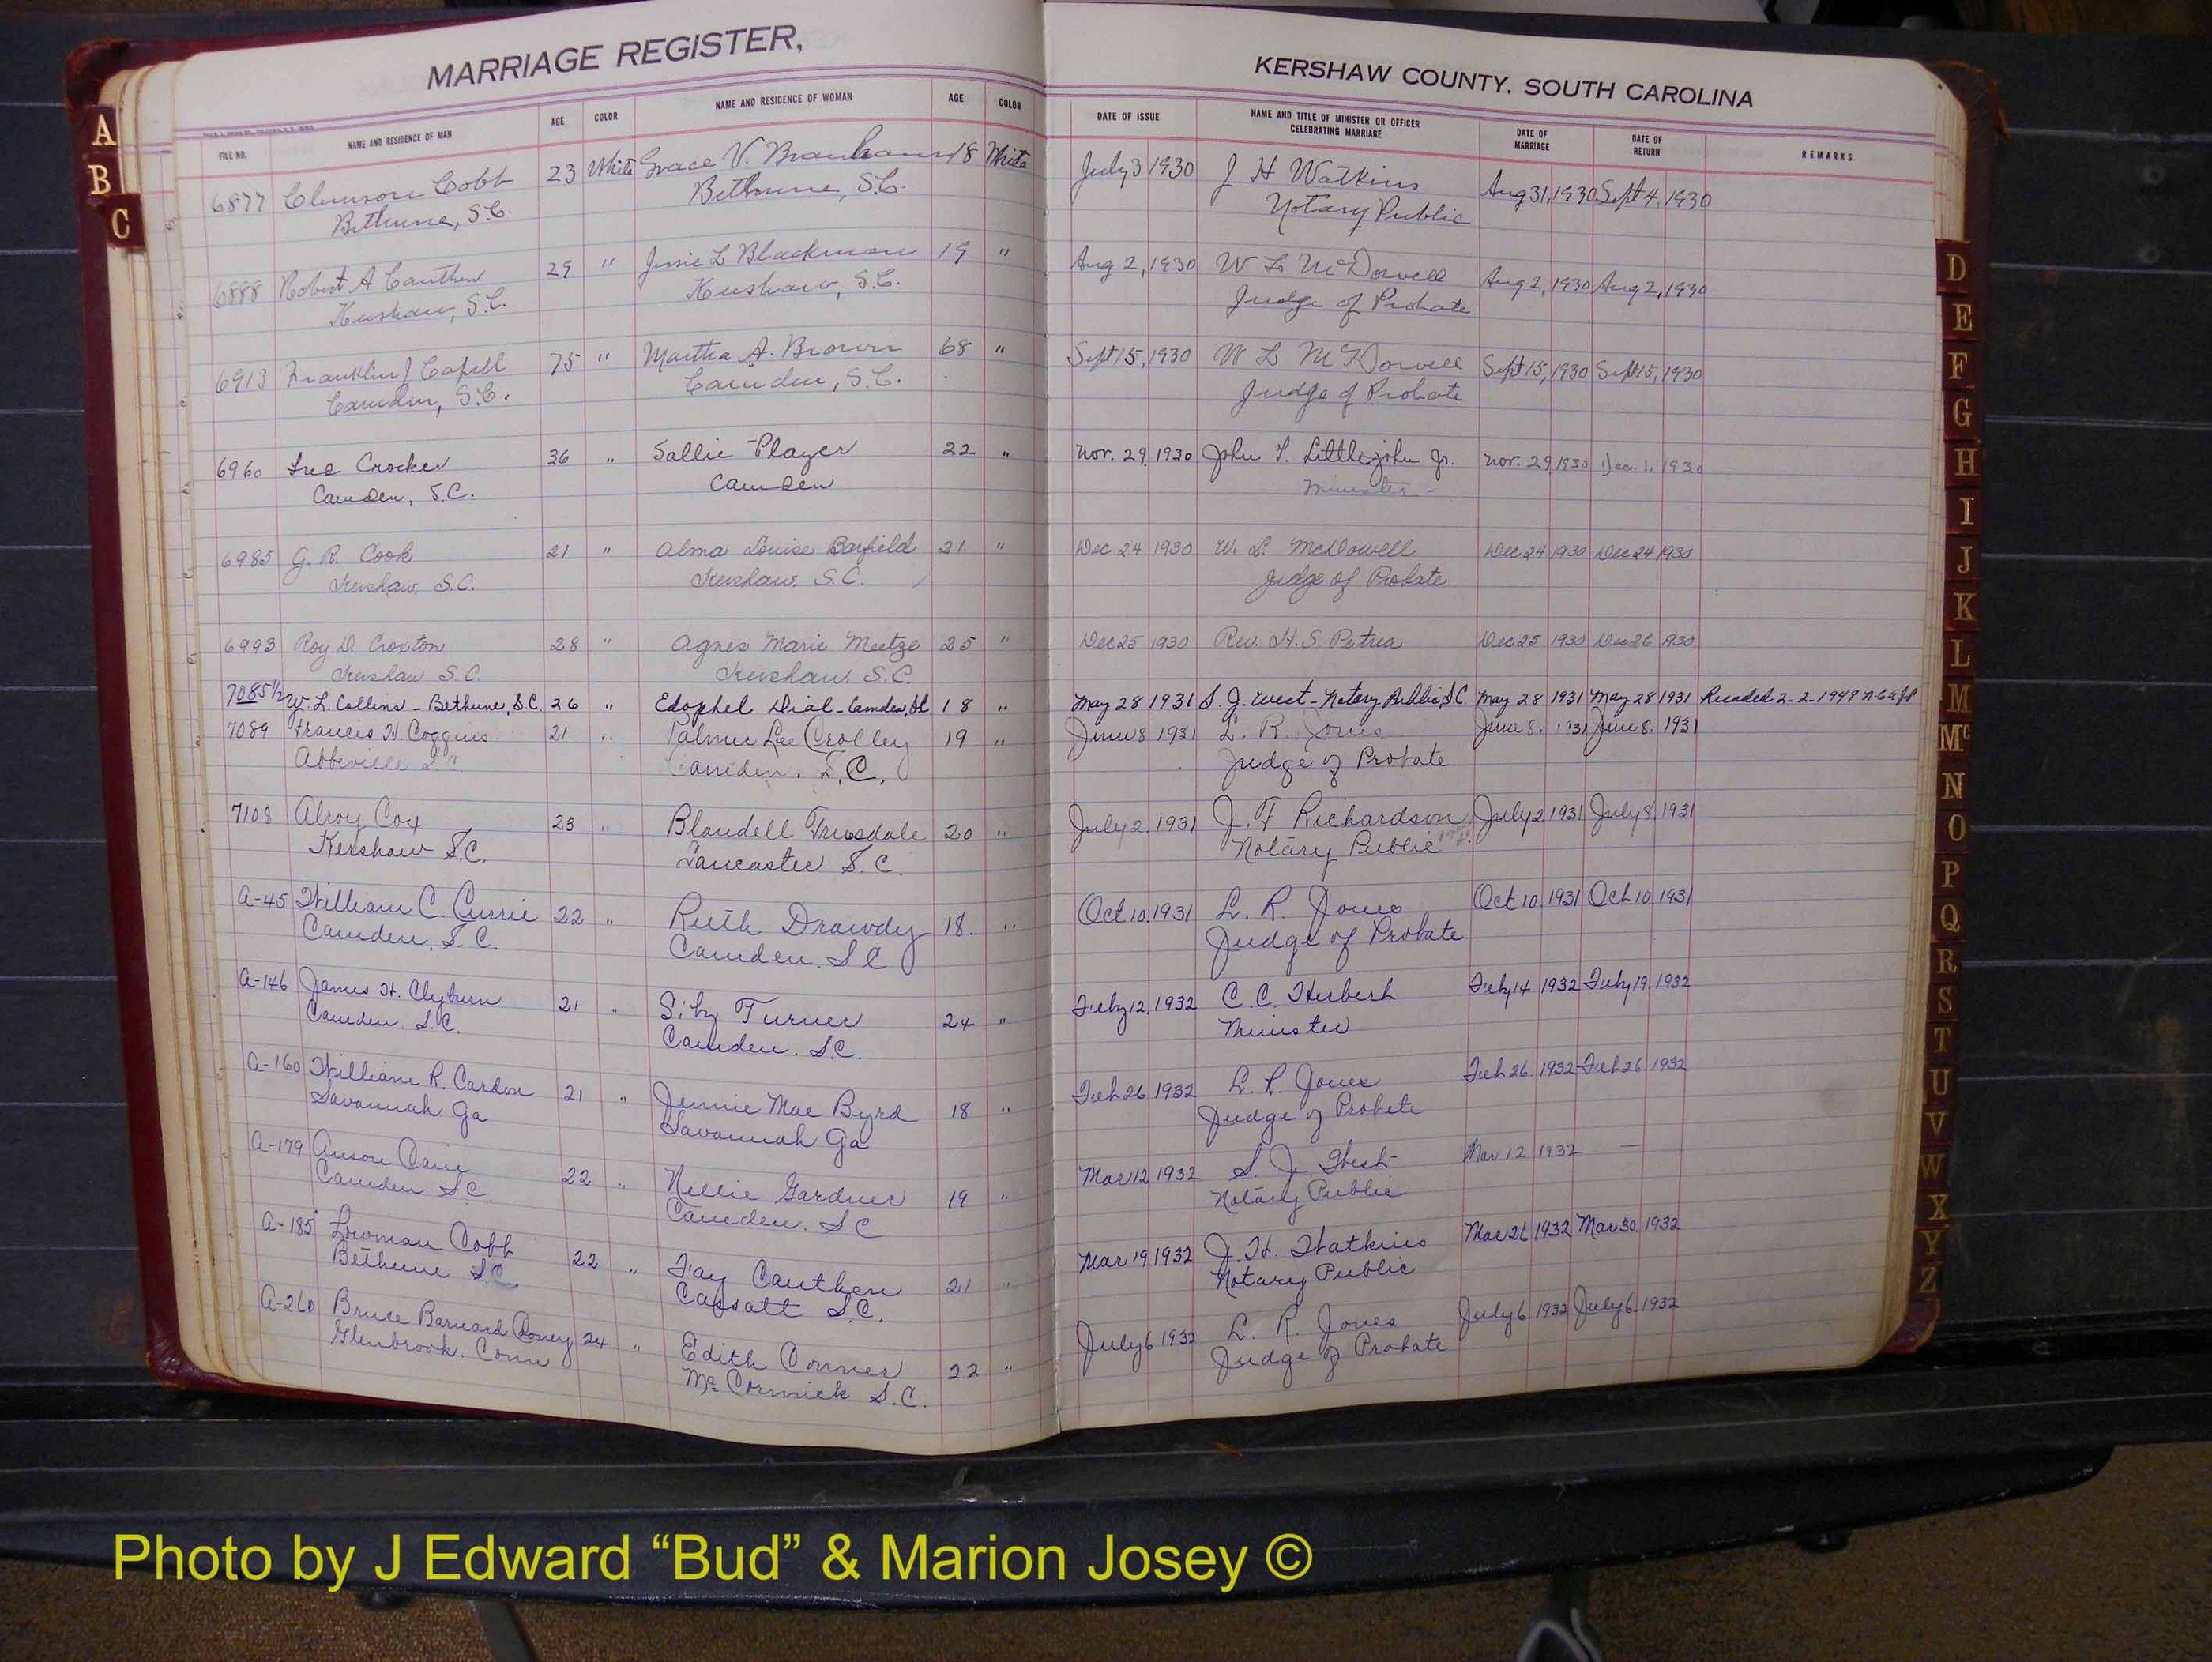 MARRIAGE REGISTER,
KERSHAW COUNTY, SOUTH CAROLINA
FILE NO. NAME AND RESIDENCE OF MAN AGE COLOR NAME AND RESIDENCE OF WOMAN AGE COLOR DATE OF ISSUE NAME AND TITLE OF MINISTER OR OFFICER CELEBRATING MARRIAGE DATE OF MARRIAGE DATE OF RETURN REMARKS
6877 Clemson Cobb 23 White Grace V. Branham 18 White July 3 1930 J H Watkins Aug 31, 1930 Sept 4, 1930
Bethune, S.C. Bethune, S.C. Notary Public
6888 Robert A Cauthen 29 " Jessie L Blackmon 19 " Aug 2, 1930 W L McDowell Aug 2, 1930 Aug 2, 1930
Kershaw, S.C. Kershaw, S.C. Judge of Probate
6913 Franklin J Capell 75 " Martha A. Brown 68 " Sept 15, 1930 W L McDowell Sept 15, 1930 Sept 15, 1930
Camden, S.C. Camden, S.C. Judge of Probate
6960 Fred Crocker 36 " Sallie Player 22 " Nov. 29, 1930 John F. Littlejohn Jr. Nov. 29 1930 Dec. 1, 1930
Camden, S.C. Camden Minister -
6985 G. R. Cook 21 " Alma Louise Barfield 21 " Dec 24 1930 W. L. McDowell Dec 24 1930 Dec 24 1930
Kershaw, S.C. Kershaw, S.C. Judge of Probate
6993 Roy D. Croxton 28 " Agnes Marie Meetze 25 " Dec 25 1930 Rev. H. S. Petrea Dec 25 1930 Dec 26 1930
Kershaw S.C. Kershaw, S.C.
7085 1/2 W. L. Collins - Bethune, S.C. 26 " Edophel Dial - Camden, SC 18 " May 28 1931 S. J. West - Notary Public, S.C. May 28 1931 May 28 1931 Recorded 2-2-1949
7089 Francis H. Coggins 21 " Palmer Lee Crolley 19 " June 8 1931 L. R. Jones June 8, 1931 June 8, 1931
Abbeville S.C. Camden, S.C. Judge of Probate
7108 Alroy Cox 23 " Blaudell Truesdale 20 " July 2, 1931 J. F Richardson July 2 1931 July 8, 1931
Kershaw S.C. Lancaster S.C. Notary Public
A-45 William C. Currie 22 " Ruth Drawdy 18. " Oct 10, 1931 L. R. Jones Oct 10, 1931 Oct 10, 1931
Camden, S.C. Camden, S C Judge of Probate
A-146 James H. Clyburn 21 " Siby Turner 24 " Feby 12, 1932 C. C. Herbert Feby 14 1932 Feby 19, 1932
Camden, S.C. Camden, S.C. Minister
A-160 William R. Cardon 21 " Jennie Mae Byrd 18 " Feb 26 1932 L. R. Jones Feb 26 1932 Feb 26 1932
Savannah Ga Savannah Ga Judge of Probate
A-179 Anson Cain 22 " Nellie Gardner 19 " Mar 12, 1932 S. J. West Mar 12 1932 —
Camden S C. Camden, S C Notary Public
A-185 Lowman Cobb 22 " Fay Cauthen 21 " Mar 19 1932 J. H. Watkins Mar 26 1932 Mar 30, 1932
Bethune S.C. Cassatt S.C. Notary Public
A-260 Bruce Barnard 24 " Edith Conner 22 " July 6 1932 L. R. Jones July 6 1932 July 6, 1932
Glenbrook, Conn McCormick S.C. Judge of Probate
A
B
C
D
E
F
G
H
I
J
K
L
M
Mc
N
O
P
Q
R
S
T
U
V
W
X
Y
Z
Photo by J Edward “Bud” & Marion Josey ©